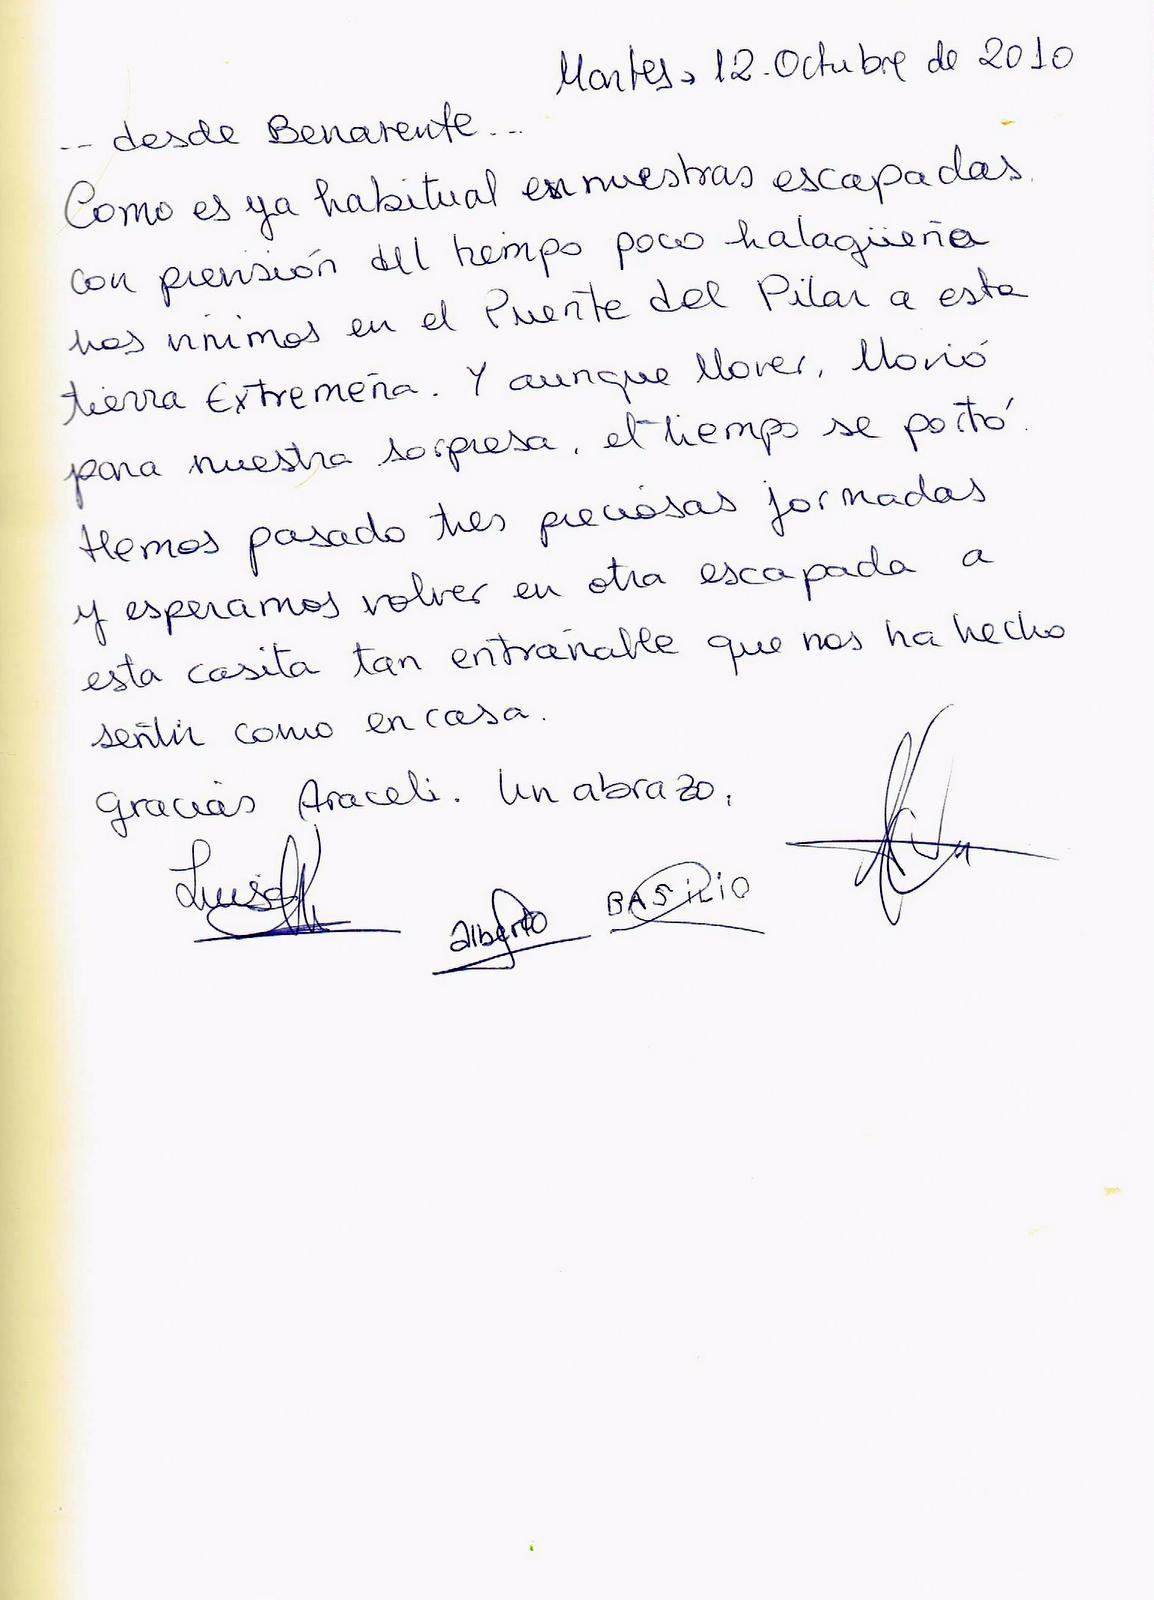 Martes, 12. Octubre de 2010
-- desde Benavente...
Como es ya habitual en nuestras escapadas.
con prensión del tiempo poco halagüeña
nos vinimos en el Puente del Pilar a esta
tierra Extremeña. Y aunque llover, llovió
para nuestra sorpresa, el tiempo se portó.
Hemos pasado tres preciosas jornadas
y esperamos volver en otra escapada a
esta casita tan entrañable que nos ha hecho
sentir como en casa.
Gracias Araceli. Un abrazo,
Luisa
alberto
BASiLiO